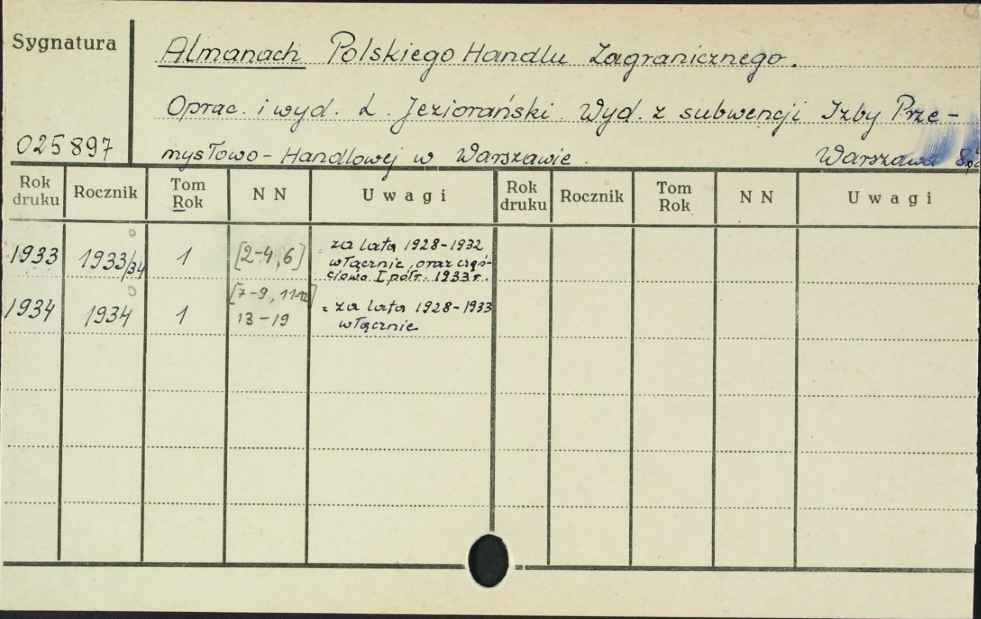 Sygnatura
Almanach Polskiego Handlu Zagranicznego.
Oprac. i wyd. L. Jeziorański. Wyd. z subwencji Izby Prze-
025897
mysłowo-Handlowej w Warszawie. Warszawa
Rok druku Rocznik Tom Rok NN Uwagi Rok druku Rocznik Tom Rok NN Uwagi
1933 1933/34 1 [2-4, 6] za lata 1928-1932
włącznie, oraz częś-
ciowo I półr. 1933 r.
[7-9, 11-12]
1934 1934 1 13-19 za lata 1928-1933
włącznie